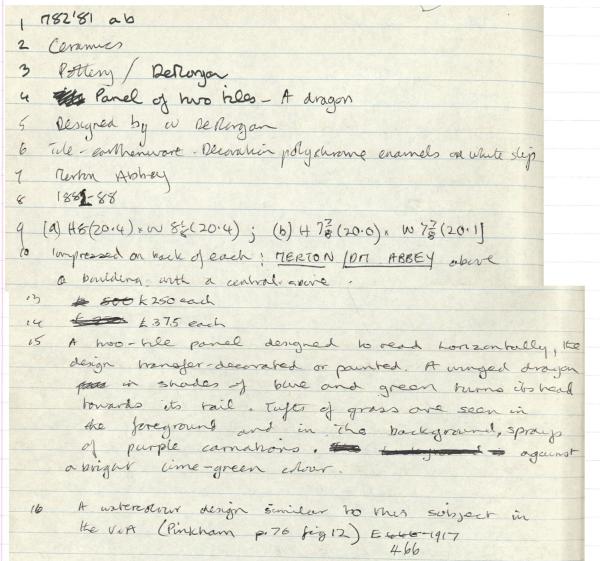 1 782'81 ab
2 Ceramics
3 Pottery / DeMorgan
4 Panel of two tiles - A dragon
5 Designed by W DeMorgan
6 Tile - earthenware. Decoration polychrome enamels on white slip
7 Merton Abbey
8 1882-88
9 [(a) H 8 (20.4) x W 8 (20.4) ; (b) H 7 7/8 (20.0) x W 7 7/8 (20.1]
10 Impressed on back of each : MERTON / DM ABBEY above
a building with a central spire.
13 £250 each
14 £375 each
15 A two-tile panel designed to read horizontally, the
design transfer-decorated or painted. A winged dragon
in shades of blue and green turns its head
towards its tail. Tufts of grass are seen in
the foreground and in the background, sprays
of purple carnations. against
a bright lime-green colour.
16 A watercolour design similar to this subject in
the V&A (Pinkham p.76 fig 12) E 1917
466